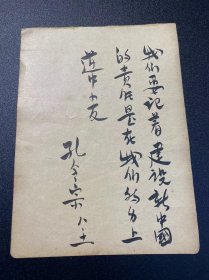 我们要记着建设新中國
的责任是在我们的身上
小友
孔令宗 八